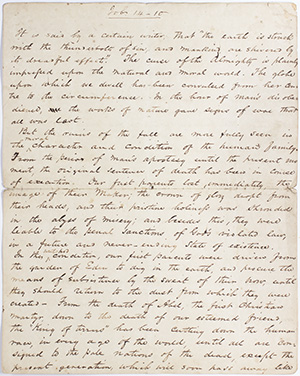 Job 14-10
It is said by a certain writer that "the earth is struck
with the thunderbolts of sin, and mankind are shivered by
its dreadful effects." The curse of the Almighty is plainly
impressed upon the natural and moral world. The globe
upon which we dwell has been convulsed from her cen-
tre to the circumference. In the hour of man's disobe-
dience, the works of nature gave signs of woe that
all was lost.
But the ruins of the fall are more fully seen in
the character and condition of the human family.
From the period of man's apostasy until the present mo-
ment, the original sentence of death has been in course
of execution. Our first parents lost immediately the
image of their Maker. Crown of glory dropt from
their heads, and their pristine holiness was shrouded
in the abyss of misery; and besides this, they were
liable to the penal sanctions of God's violated law,
in a future and never-ending state of existence.
In this condition, our first parents were driven from
the garden of Eden to dig in the earth, and procure the
means of subsistence by the sweat of their brow, until
they should return to the dust from which they were
created. From the death of Abel, the first Christian
martyr down to the death of our esteemed friend
the "King of terrors" has been cutting down the human
race, in every age of the world, until all are con-
signed to the pale nations of the dead, except the
present generation, which will soon pass away like